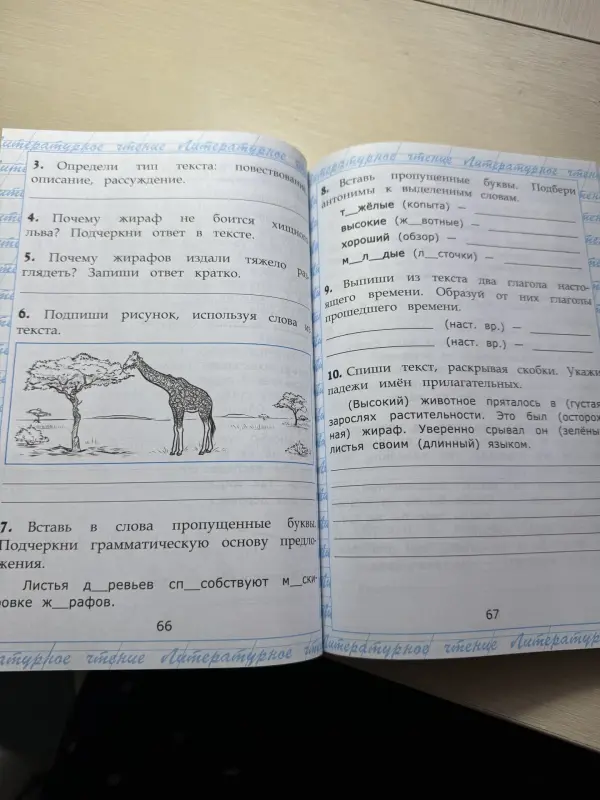 Литературное чтение Литературное чтение
3. Определи тип текста: повествование,
описание, рассуждение.
4. Почему жираф не боится хищного
льва? Подчеркни ответ в тексте.
5. Почему жирафов издали тяжело раз
глядеть? Запиши ответ кратко.
6. Подпиши рисунок, используя слова из
текста.
7. Вставь в слова пропущенные буквы.
Подчеркни грамматическую основу предло-
жения.
Листья д__ревьев сп__собствуют м__ски-
ровке ж__рафов.
66
атурное чтение Литературное чте
Литературное чтение Литературное чтение
8. Вставь пропущенные буквы. Подбери
антонимы к выделенным словам.
т__жёлые (копыта) —
высокие (ж__вотные) —
хороший (обзор) —
м__л__дые (л__сточки) —
9. Выпиши из текста два глагола насто-
ящего времени. Образуй от них глаголы
прошедшего времени.
(наст. вр.) —
(наст. вр.) —
10. Спиши текст, раскрывая скобки. Укажи
падежи имён прилагательных.
(Высокий) животное пряталось в (густая
зарослях растительности. Это был (осторож
ная) жираф. Уверенно срывал он (зелёны
листья своим (длинный) языком.
67
Литературное чтение Литературно